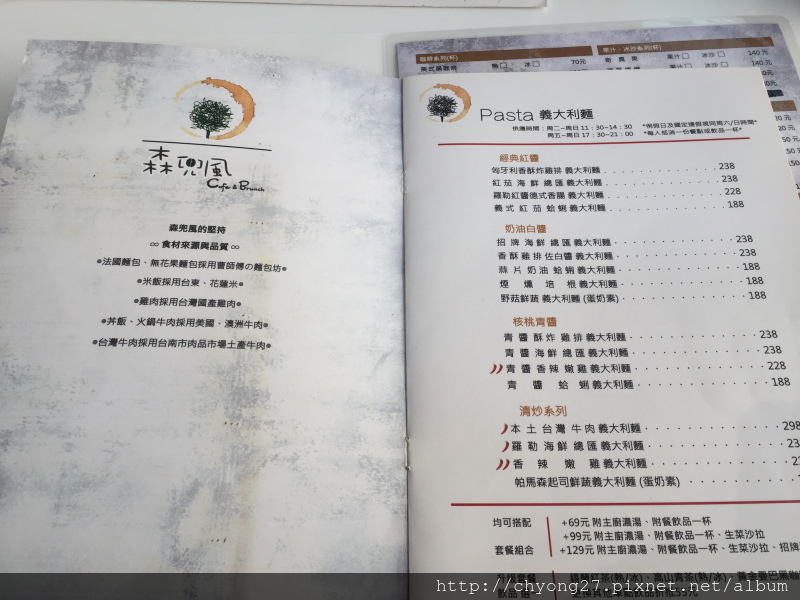 森兜風
Cafe & Brunch
森兜風的堅持
∞ 食材來源與品質 ∞
●法國麵包、無花果麵包採用曹師傅の麵包坊●
●米飯採用台東、花蓮米●
●雞肉採用台灣國產雞肉●
●丼飯、火鍋牛肉採用美國、澳洲牛肉●
●台灣牛肉採用台南市肉品市場土產牛肉●
咖啡系列(杯)
美式黑咖啡 熱□ 冰□ 70元
果汁、冰沙系列(杯)
果汁□ 冰沙□ 140元
果汁□ 冰沙□ 140元
Pasta 義大利麵
供應時間：周二~周日 11：30~14：30 *例假日及國定連假視同周六/日時間*
周五~周日 17：30~21：00 *每人低消一份餐點或飲品一杯*
經典紅醬
匈牙利香酥炸雞排 義大利麵 238
紅茄海鮮總匯義大利麵 238
羅勒紅醬德式香腸 義大利麵 228
義式紅茄蛤蜊義大利麵 188
奶油白醬
招牌海鮮總匯義大利麵 238
香酥雞排佐白醬義大利麵 238
蒜片奶油蛤蜊義大利麵 188
煙燻培根義大利麵 188
野菇鮮蔬義大利麵 (蛋奶素) 188
核桃青醬
青醬酥炸雞排義大利麵 238
青醬海鮮總匯義大利麵 238
青醬香辣嫩雞義大利麵 228
青醬蛤蜊義大利麵 188
清炒系列
本土台灣牛肉義大利麵 298
羅勒海鮮總匯義大利麵
香辣嫩雞義大利麵
帕馬森起司鮮蔬義大利麵 (蛋奶素)
均可搭配 +69元 附主廚濃湯、附餐飲品一杯
+99元 附主廚濃湯、附餐飲品一杯、生菜沙拉
套餐組合 +129元 附主廚濃湯、附餐飲品一杯、生菜沙拉、招牌
升級套餐 錫蘭紅茶(熱/冰)、高山青茶(熱/冰)、黃金曼巴黑咖
飲品選
http://chyong27.pixnet.net/album